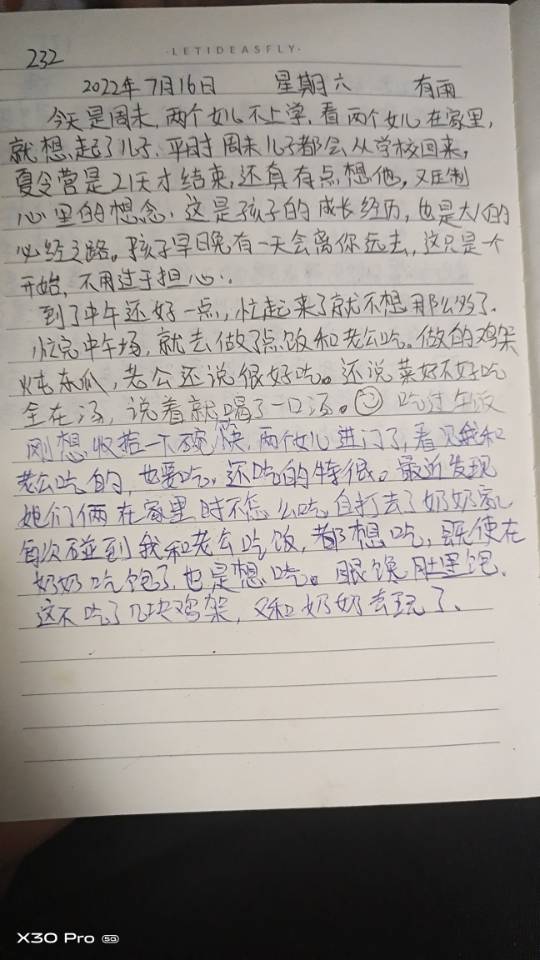 232
·LETIDEASFLY·
2022年7月16日 星期六 有雨
今天是周末,两个女儿不上学,看两个女儿在家里,
就想起了儿子,平时周末儿子都会从学校回来,
夏令营是21天才结束,还真有点想他,又压制
心里的想念,这是孩子的成长经历,也是大人的
必经之路。孩子早晚有一天会离你远去,这只是个
开始,不用过于担心.
到了中午还好一点,忙起来了就不想那么多了.
忙完中午场,就去做了点饭和老公吃。做的鸡架
炖东瓜,老公还说很好吃。还说菜好不好吃
全在汤,说着就喝了一口汤。吃过午饭
刚想收拾一下碗筷,两个女儿进门了,看见我和
老公吃的,也要吃,还吃的特很。最近发现
她们俩在家里时不怎么吃,自打去了奶奶家,
每次碰到我和老公吃饭,都想吃,既使在
奶奶吃饱了,也是想吃。眼馋肚里饱,
这不吃了几块鸡架,又和奶奶去玩了.
X30 Pro 5G